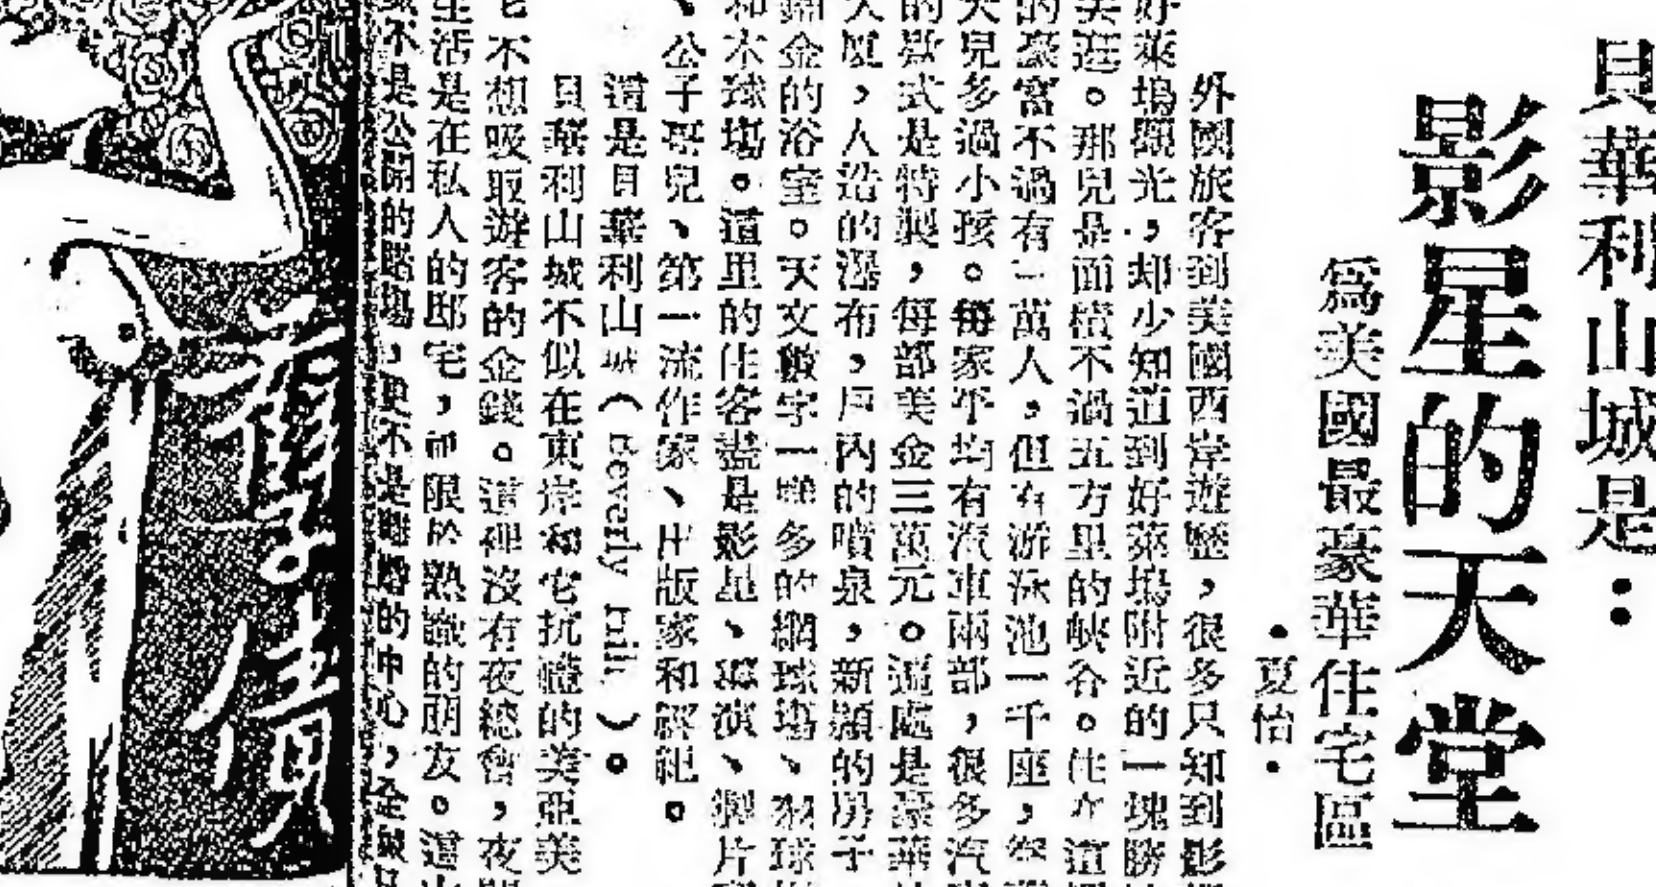 貝華利山城是：
影星的天堂
爲美國最豪華住宅區
•夏怡•
外國旅客到美國西岸遊歷，很多只知到影
好萊塢觀光，却少知道到好萊塢附近的一塊勝
美逛。那兒是面積不過五方里的峽谷。住在這
的豪富不過有一萬人，但有游泳池一千座，
犬兒多過小孩。每家平均有汽車兩部，很多汽
的款式是特製，每部美金三萬元。這處是豪華
大廈，人造的瀑布，戶內的噴泉，新穎的房子
金的浴室。天文數字一樣多的網球場、
和木球場。這里的住客盡是影星、導演、製片
、公子哥兒、第一流作家、出版家和經紀。
這是貝華利山城（Beverly Hill）。
貝華利山城不似在東岸和它抗禮的美亞美
它不想吸取遊客的金錢。這裡沒有夜總會，夜
生活是在私人的邸宅，祗限於熟識的朋友。這
不是公開的賭場，更不是離婚的中心，
價